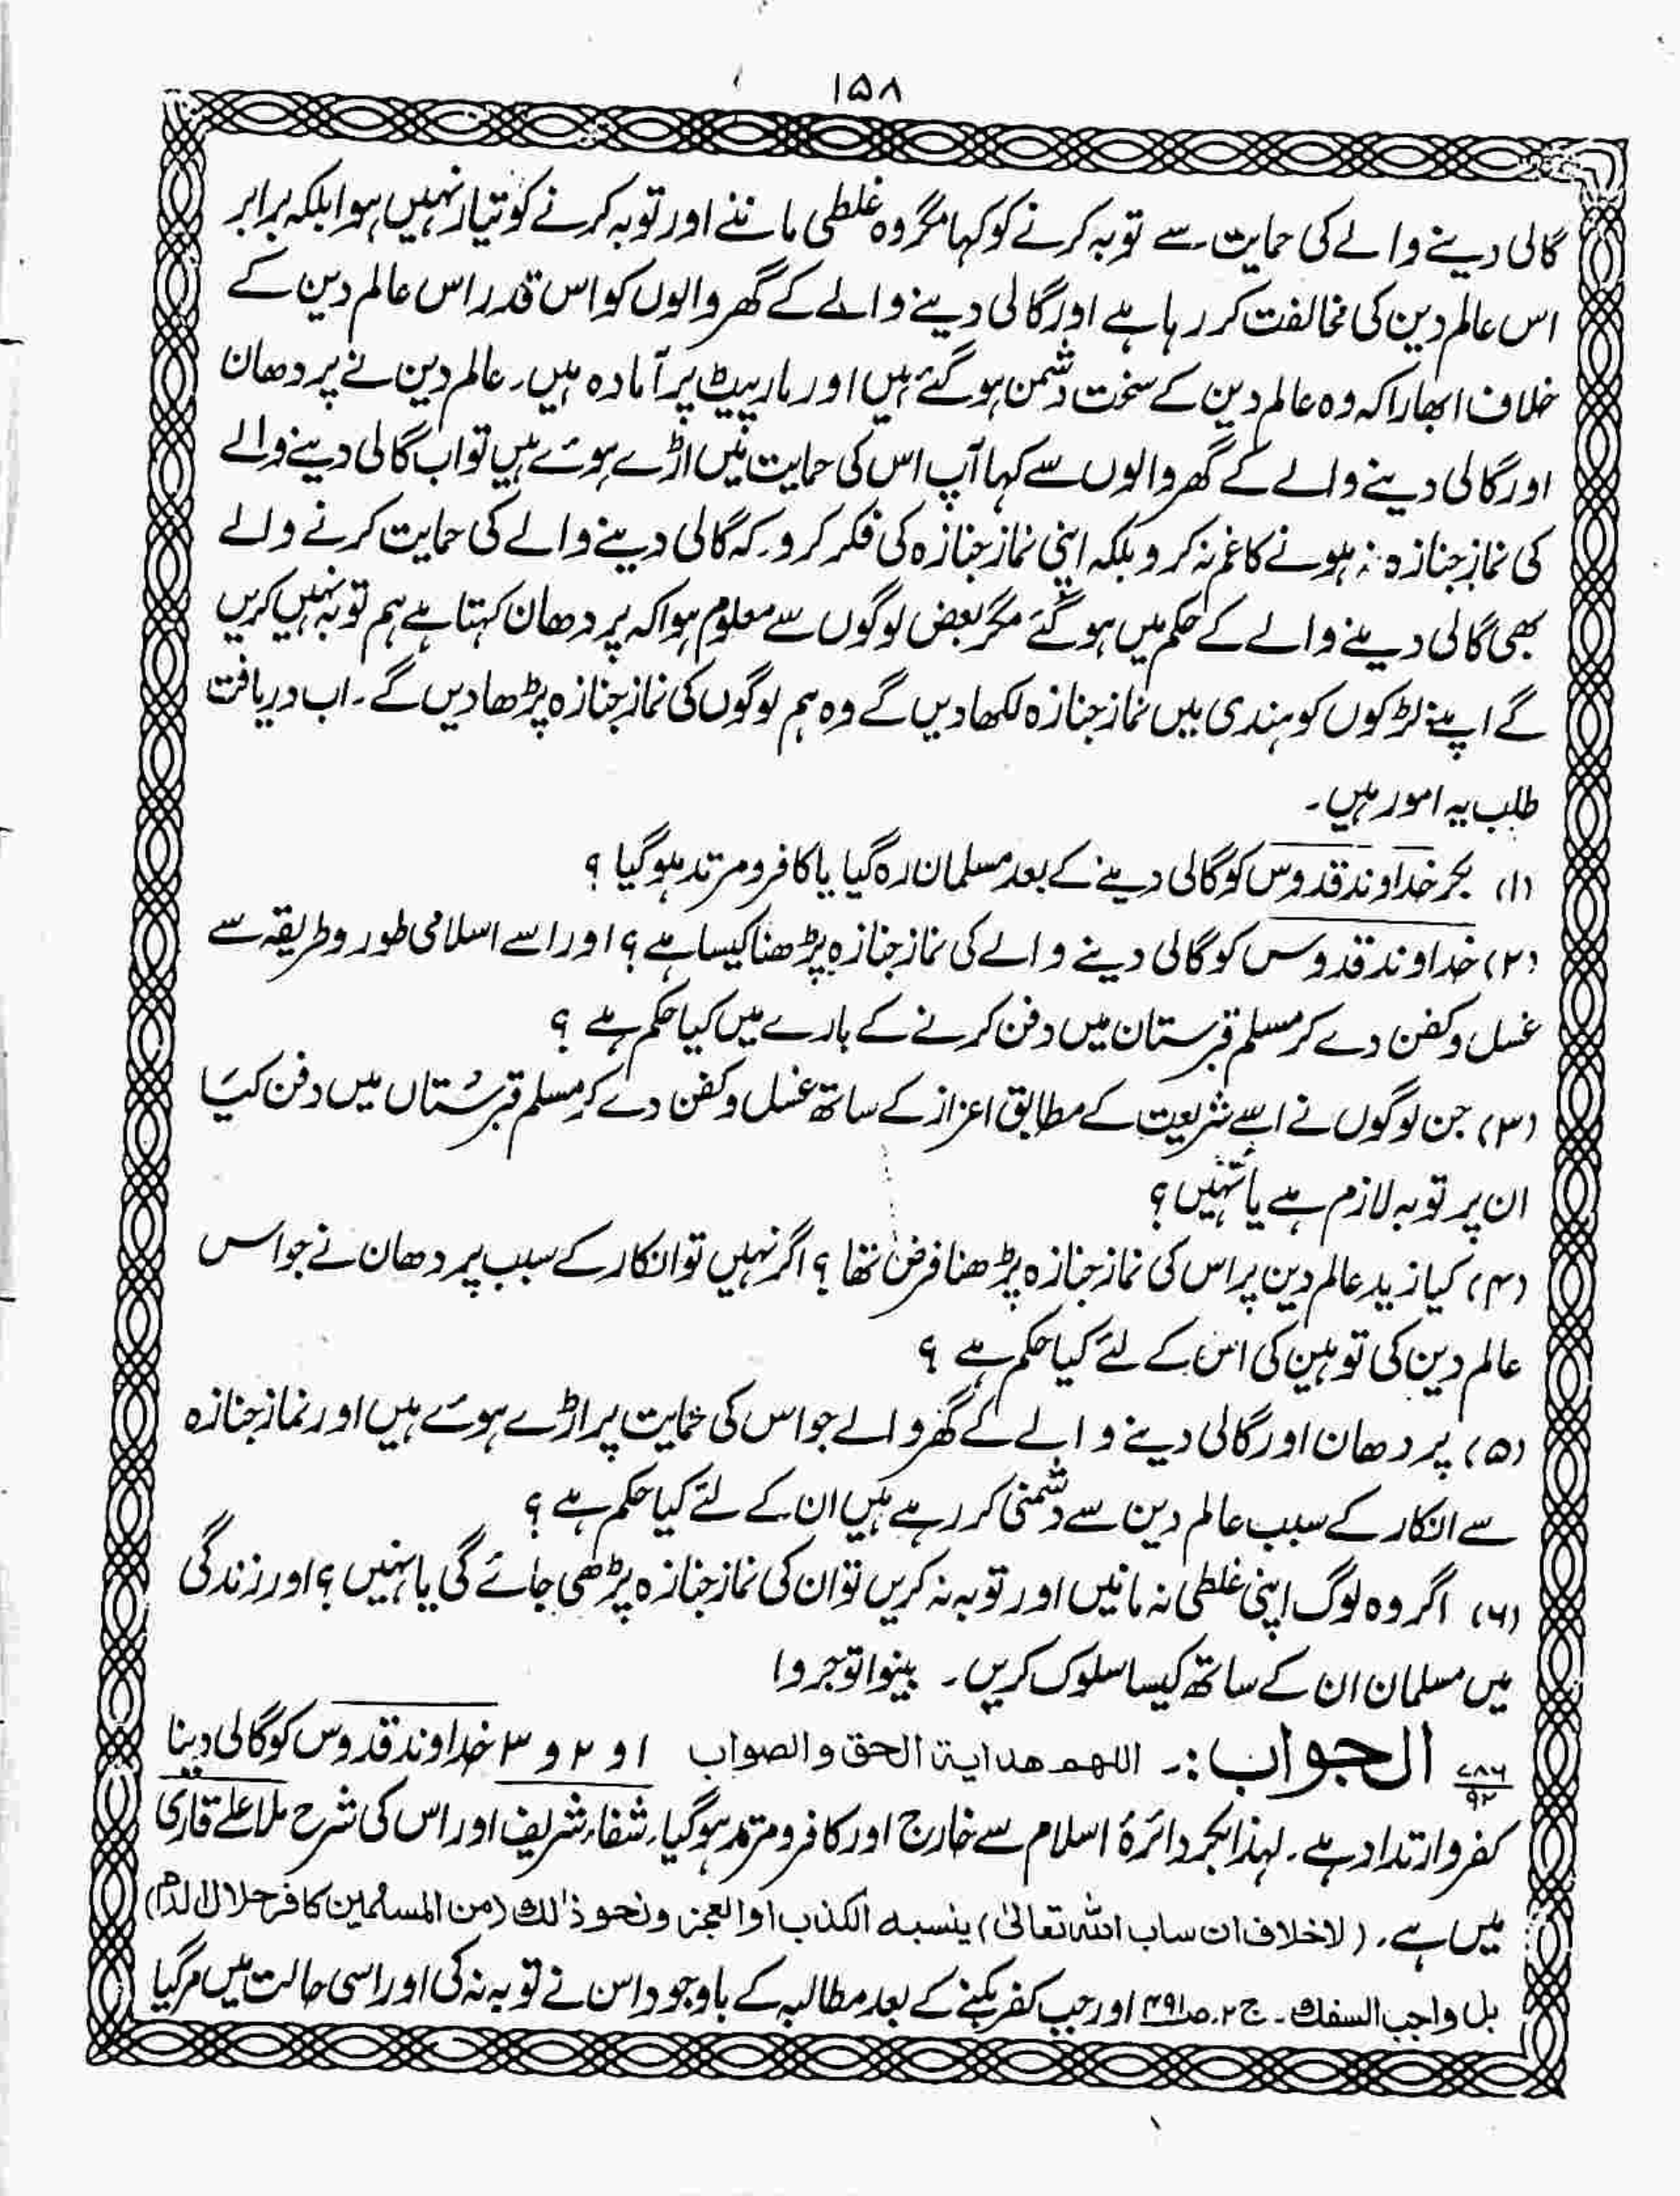 ۱۵۸
گالی دینے والے کی حمایت سے توبہ کرنے کو کہا مگر وہ غلطی ماننے اور توبہ کرنے کو تیار نہیں ہوا بلکہ برابر
اس عالم دین کی مخالفت کر رہا ہے اور گالی دینے والے کے گھر والوں کو اس قدر اس عالم دین کے
خلاف ابھارا کہ وہ عالم دین کے سخت دشمن ہو گئے ہیں اور مار پیٹ پر آمادہ ہیں۔ عالم دین نے پردھان
اور گالی دینے والے کے گھر والوں سے کہا آپ اس کی حمایت میں اڑے ہوئے ہیں تو اب گالی دینے والے
کی نماز جنازہ نہ ہونے کا غم نہ کرو بلکہ اپنی نماز جنازہ کی فکر کرو۔ کہ گالی دینے والے کی حمایت کرنے والے
بھی گالی دینے والے کے حکم میں ہو گئے مگر بعض لوگوں سے معلوم ہوا کہ پردھان کہتا ہے ہم توبہ نہیں کریں
گے اپنے لڑکوں کو ہندی میں نماز جنازہ لکھا دیں گے وہ ہم لوگوں کی نماز جنازہ پڑھا دیں گے۔ اب دریافت
طلب یہ امور ہیں۔
(۱) بکر خداوند قدوس کو گالی دینے کے بعد مسلمان رہ گیا یا کافر و مرتد ہو گیا ؟
(۲) خداوند قدوس کو گالی دینے والے کی نماز جنازہ پڑھنا کیسا ہے ؟ اور اسے اسلامی طور و طریقہ سے
غسل و کفن دے کر مسلم قبرستان میں دفن کرنے کے بارے میں کیا حکم ہے ؟
(۳) جن لوگوں نے اسے شریعت کے مطابق اعزاز کے ساتھ غسل و کفن دے کر مسلم قبرستاں میں دفن کیا
ان پر توبہ لازم ہے یا نہیں ؟
(۴) کیا زید عالم دین پر اس کی نماز جنازہ پڑھنا فرض تھا ؟ اگر نہیں تو انکار کے سبب پردھان نے جو اس
عالم دین کی توہین کی اس کے لئے کیا حکم ہے ؟
(۵) پردھان اور گالی دینے والے کے گھر والے جو اس کی حمایت پر اڑے ہوئے ہیں اور نماز جنازہ
سے انکار کے سبب عالم دین سے دشمنی کر رہے ہیں ان کے لئے کیا حکم ہے ؟
(۶) اگر وہ لوگ اپنی غلطی نہ مانیں اور توبہ نہ کریں تو ان کی نماز جنازہ پڑھی جائے گی یا نہیں ؟ اور زندگی
میں مسلمان ان کے ساتھ کیسا سلوک کریں۔ بینوا توجروا
۷۸۶/۹۲ الجواب :۔ اللهم هداية الحق و الصواب ۱ و ۲ و ۳ خداوند قدوس کو گالی دینا
کفر و ارتداد ہے۔ لہذا بکر دائرۂ اسلام سے خارج اور کافر و مرتد ہو گیا۔ شفاء شریف اور اس کی شرح ملا علے قاری
میں ہے۔ (لا خلاف ان ساب الله تعالیٰ) ینسبه الکذب او العجز و نحو ذٰلك (من المسلمین کافر حلال الدم)
بل واجب السفك۔ ج ۲۔ ص ۴۹۱ اور جب کفر بکنے کے بعد مطالبہ کے باوجود اس نے توبہ نہ کی اور اسی حالت میں مر گیا